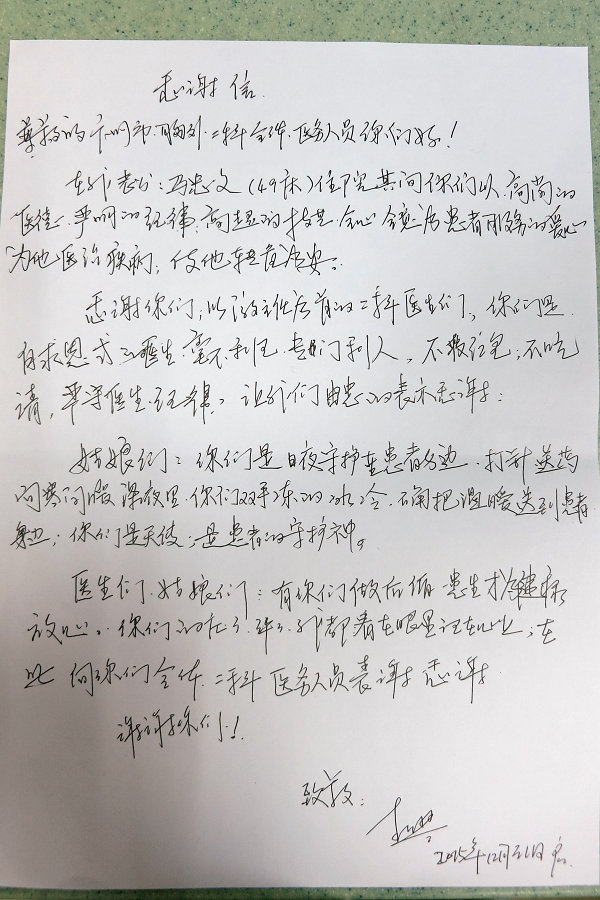 感谢信
尊敬的 胸外二科全体医务人员你们好!
在我老公:马忠文(49床)住院其间你们以高尚的
医德、严明的纪律、高超的技艺、全心全意为患者服务的爱心
为他医治疾病,使他转危为安。
感谢你们,以 主任为首的二科医生们,你们是
白求恩式的医生,毫不利己,专门利人,不收红包,不吃
请,严守医生纪律,让我们由衷的表示感谢:
姑娘们:你们是日夜守护在患者身边,打针送药
问寒问暖,深夜里,你们双手冻的冰冷,不间把温暖送到患者
身边;你们是天使;是患者的守护神。
医生们、姑娘们:有你们做后循患生
放心。你们的 我都看在眼里记在心上,在
此向你们全体二科医务人员表谢感谢
谢谢你们!
致敬:
12月21日